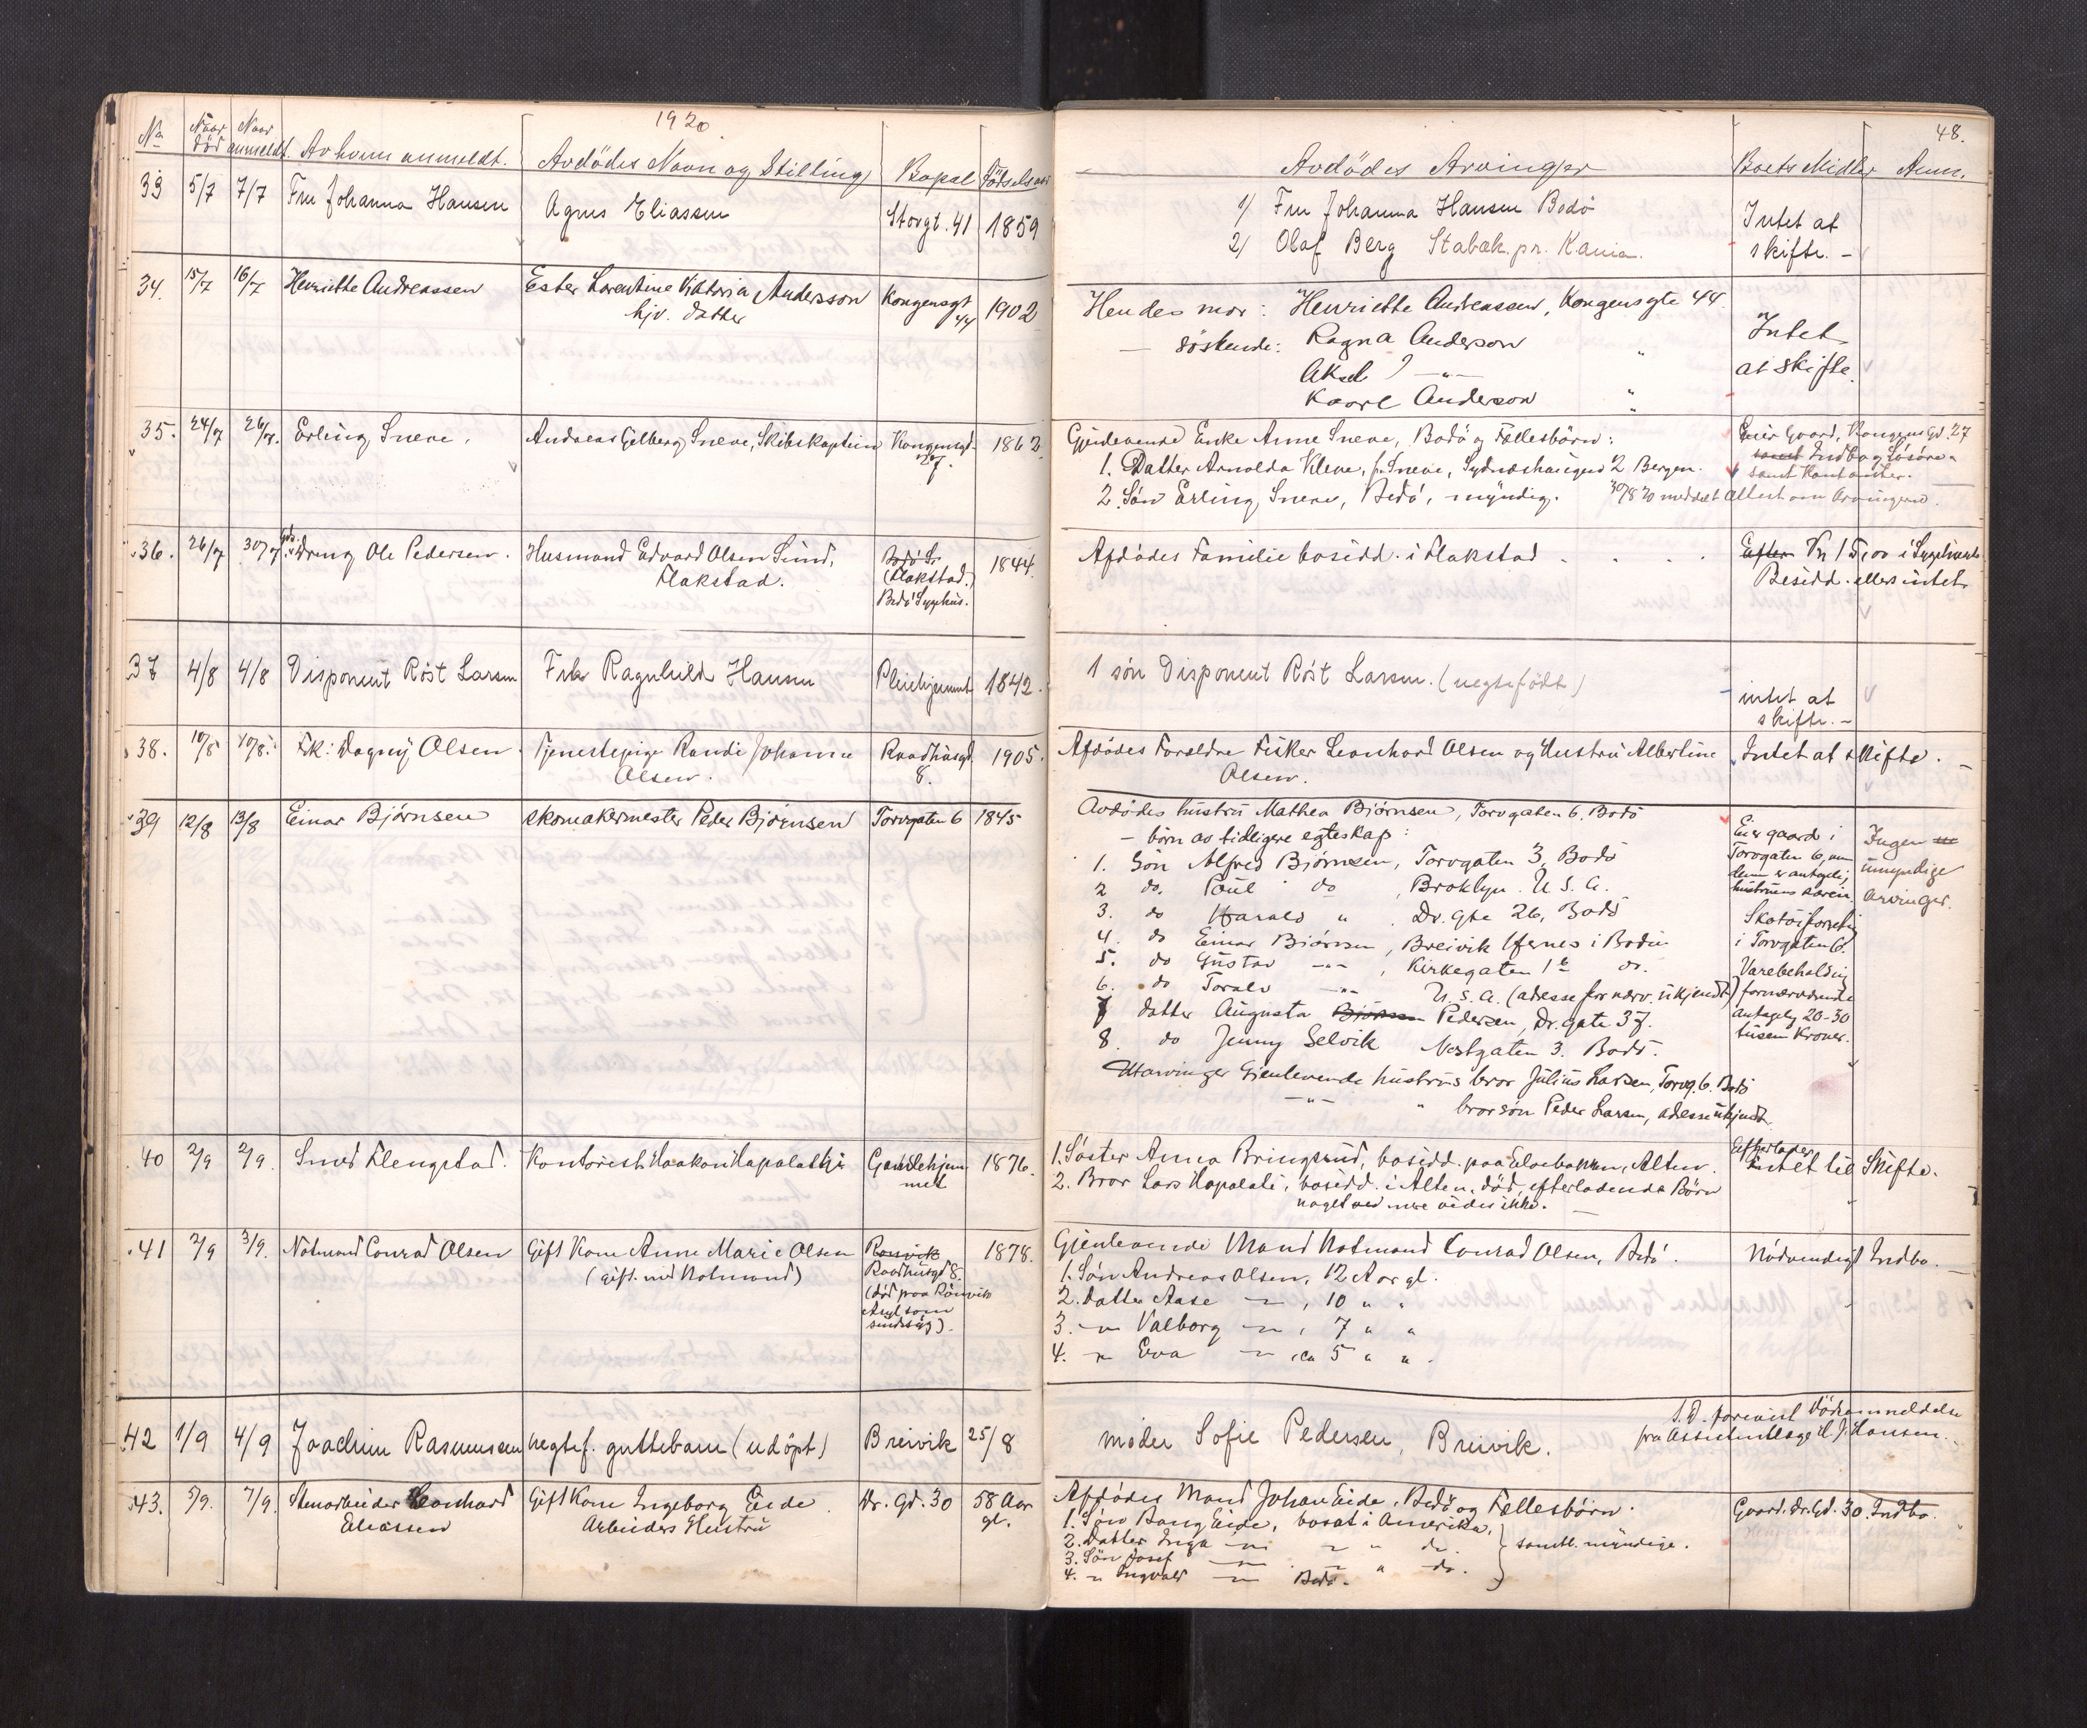 1920
No Naar död Naar anmeldt. Av hvem anmeldt. Avdödes Navn og Stilling Bopæl Fødselsaar
33 5/7 7/7 Fru Johanna Hansen Agnes Eliassen Storgt. 41 1859
34. 15/7 16/7 Henriette Andreassen Ester Lorentine Viktoria Andersson Kongensgt 44 1902
hjv. datter
35. 24/7 26/7. Erling Sneve. Andreas Gilberg Sneve, Skibskaptein Kongensgd. 27. 1862
36. 26/7 30/7 Ole Pedersen. Husmand Edvard Olsen Sund, 1844.
Flakstad. (Flakstad.)
Bodö Sygehus.
37 4/8 4/8 Disponent Röst Larsen Frk Ragnhild Hansen Pleiehjemmet 1842.
38. 10/8 10/8. Frk: Dagny Olsen. Tjenestepige Randi Johanne Raadhusgd. 8. 1905.
Olsen.
39 12/8 13/8 Einar Bjørnsen skomakermester Peder Bjørnsen Torvgaten 6 1845
40 2/9 2/9. Smed Flengstad. Kontorist Haakon Hapalathi Gamlehjem 1876.
met
41 2/9 3/9. Notmand Conrad Olsen Gift Kone Anne Marie Olsen Rønvik 1878.
(gift med Notmand) Raadhusgd 8.
(död paa Rönvik
Asyl som
sindssyg).
42 1/9 4/9 Joachim Rasmussen uegtef. guttebarn (udöpt) Breivik 25/8
43. 5/9. 7/9. Stenarbeider Leonhard Gift Kone Ingeborg Eide. Dr. Gd. 30 58 Aar
Eliassen Arbeiders Hustru gl.
48.
Avdödes Arvinger Boets Midler Anm.
1) Fru Johanna Hansen Bodö Intet at
2) Olaf Berg Stabæk pr. Kania. skifte. -
Hendes mor: Henriette Andreassen, Kongensgte 44.
- söskende: Ragna Anderson " Intet
Aksel — " — at skifte.
Kaarl Anderson "
Gjenlevende Enke Anne Sneve, Bodö og Fællesbörn: Eier Gaard, Kongens Gd. 27
1. Datter Arnolda Kleve, f. Sneve, Sydnæshaugen 2 Bergen. samt Indbo og Løsöre
2. Sön Erling Sneve, Bodö, myndig. 30/8 20 meddelt Attest om Arvingerne. samt Kontanter.
Afdödes Familie bosidd. i Flakstad . . . Efter Kr 15,00 i Sygehuset
Besidd. ellers intet.
1 sön Disponent Röst Larsen. (uegtefödt) intet at
skifte. -
Afdödes Foreldre Fisker Leonhard Olsen og Hustru Albertine Intet at skifte. -
Olsen.
Avdödes hustru Mathea Bjørnsen, Torvgaten 6, Bodö
- börn av tidligere egteskap:
1. Sön Alfred Bjørnsen, Torvgaten 3, Bodö
2 do. Paul do , Broklyn. U. S. A.
3. do Harald " . Dr. gte 26, Bodö
4. do Einar Bjørnsen, Breivik i Bodin
5. do Gustav -"- , Kirkegaten 1b do.
6. do Toralv -"- U. S. A. (adresse for nærv. ukjendt)
7 datter Augusta Bjørnsen Pedersen, Dr. gate 37.
8. do Jenny Selvik Vestgaten 3. Bodö.
Utarvinger Gjenlevende hustrus bror Julius Larsen, Torvg. 6. Bodö
-"- " brorsön Peder Larsen, adresse ukjendt.
Eier gaard i
Torvgaten 6, men
denne er antagelig
hustruens særeie.
Skotöiforretning
i Torvgaten 6.
Varebeholdning
fornærværende
antagelig 20-30
tusen kroner.
Ingen
umyndige
arvinger.
1. Söster Anna Bringsrud, bosidd. paa Elvebakken, Alten. Efterlater
2. Bror Lars Hapalati, bosidd. i Alten, död, efterladende Börn Intet til Skifte.
noget mere vides ikke. -
Gjenlevende Mand Notmand Conrad Olsen, Bodö. Nödvendigt Indbo. -
1. Sön Andreas Olsen, 12 Aar gl.
2. Datter Aase — " — , 10 " "
3. — " Valborg — " — , 7 " "
4. — " Eva — " — , ca 5 " " .
moder Sofie Pedersen, Breivik. S. D. forevist Dödsanmeldelse
fra Assistentlæge H. J. Hansen.
Afdödes Mand Johan Eide, Bodö og Fællesbörn. Gaard. Dr. Gd. 30. Indbo.
1. Sön Bang Eide, bosat i Amerika,
2. Datter Inga — " — " do. } samtl. myndige.
3. Sön Josef — " — " do.
4. — " Ingvald — " — Bodö.